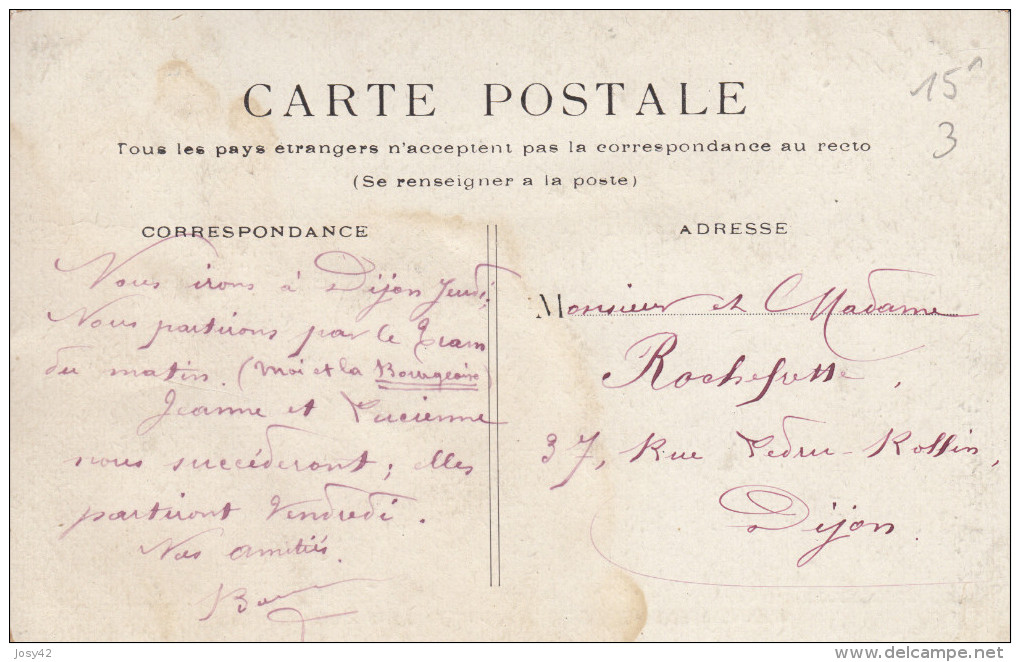 15^
3
CARTE POSTALE
Tous les pays étrangers n'acceptent pas la correspondance au recto
(Se renseigner a la poste)
CORRESPONDANCE
Nous irons à Dijon Jeudi,
Nous partirons par le Train
du matin. (moi et la Bourgeoise)
Jeanne et Lucienne
nous succéderont; elles
partiront Vendredi.
Nos amitiés.
ADRESSE
Monsieur et Madame
Rochefette,
37, Rue Ledru-Rollin,
Dijon
Josy42
delcampe.net